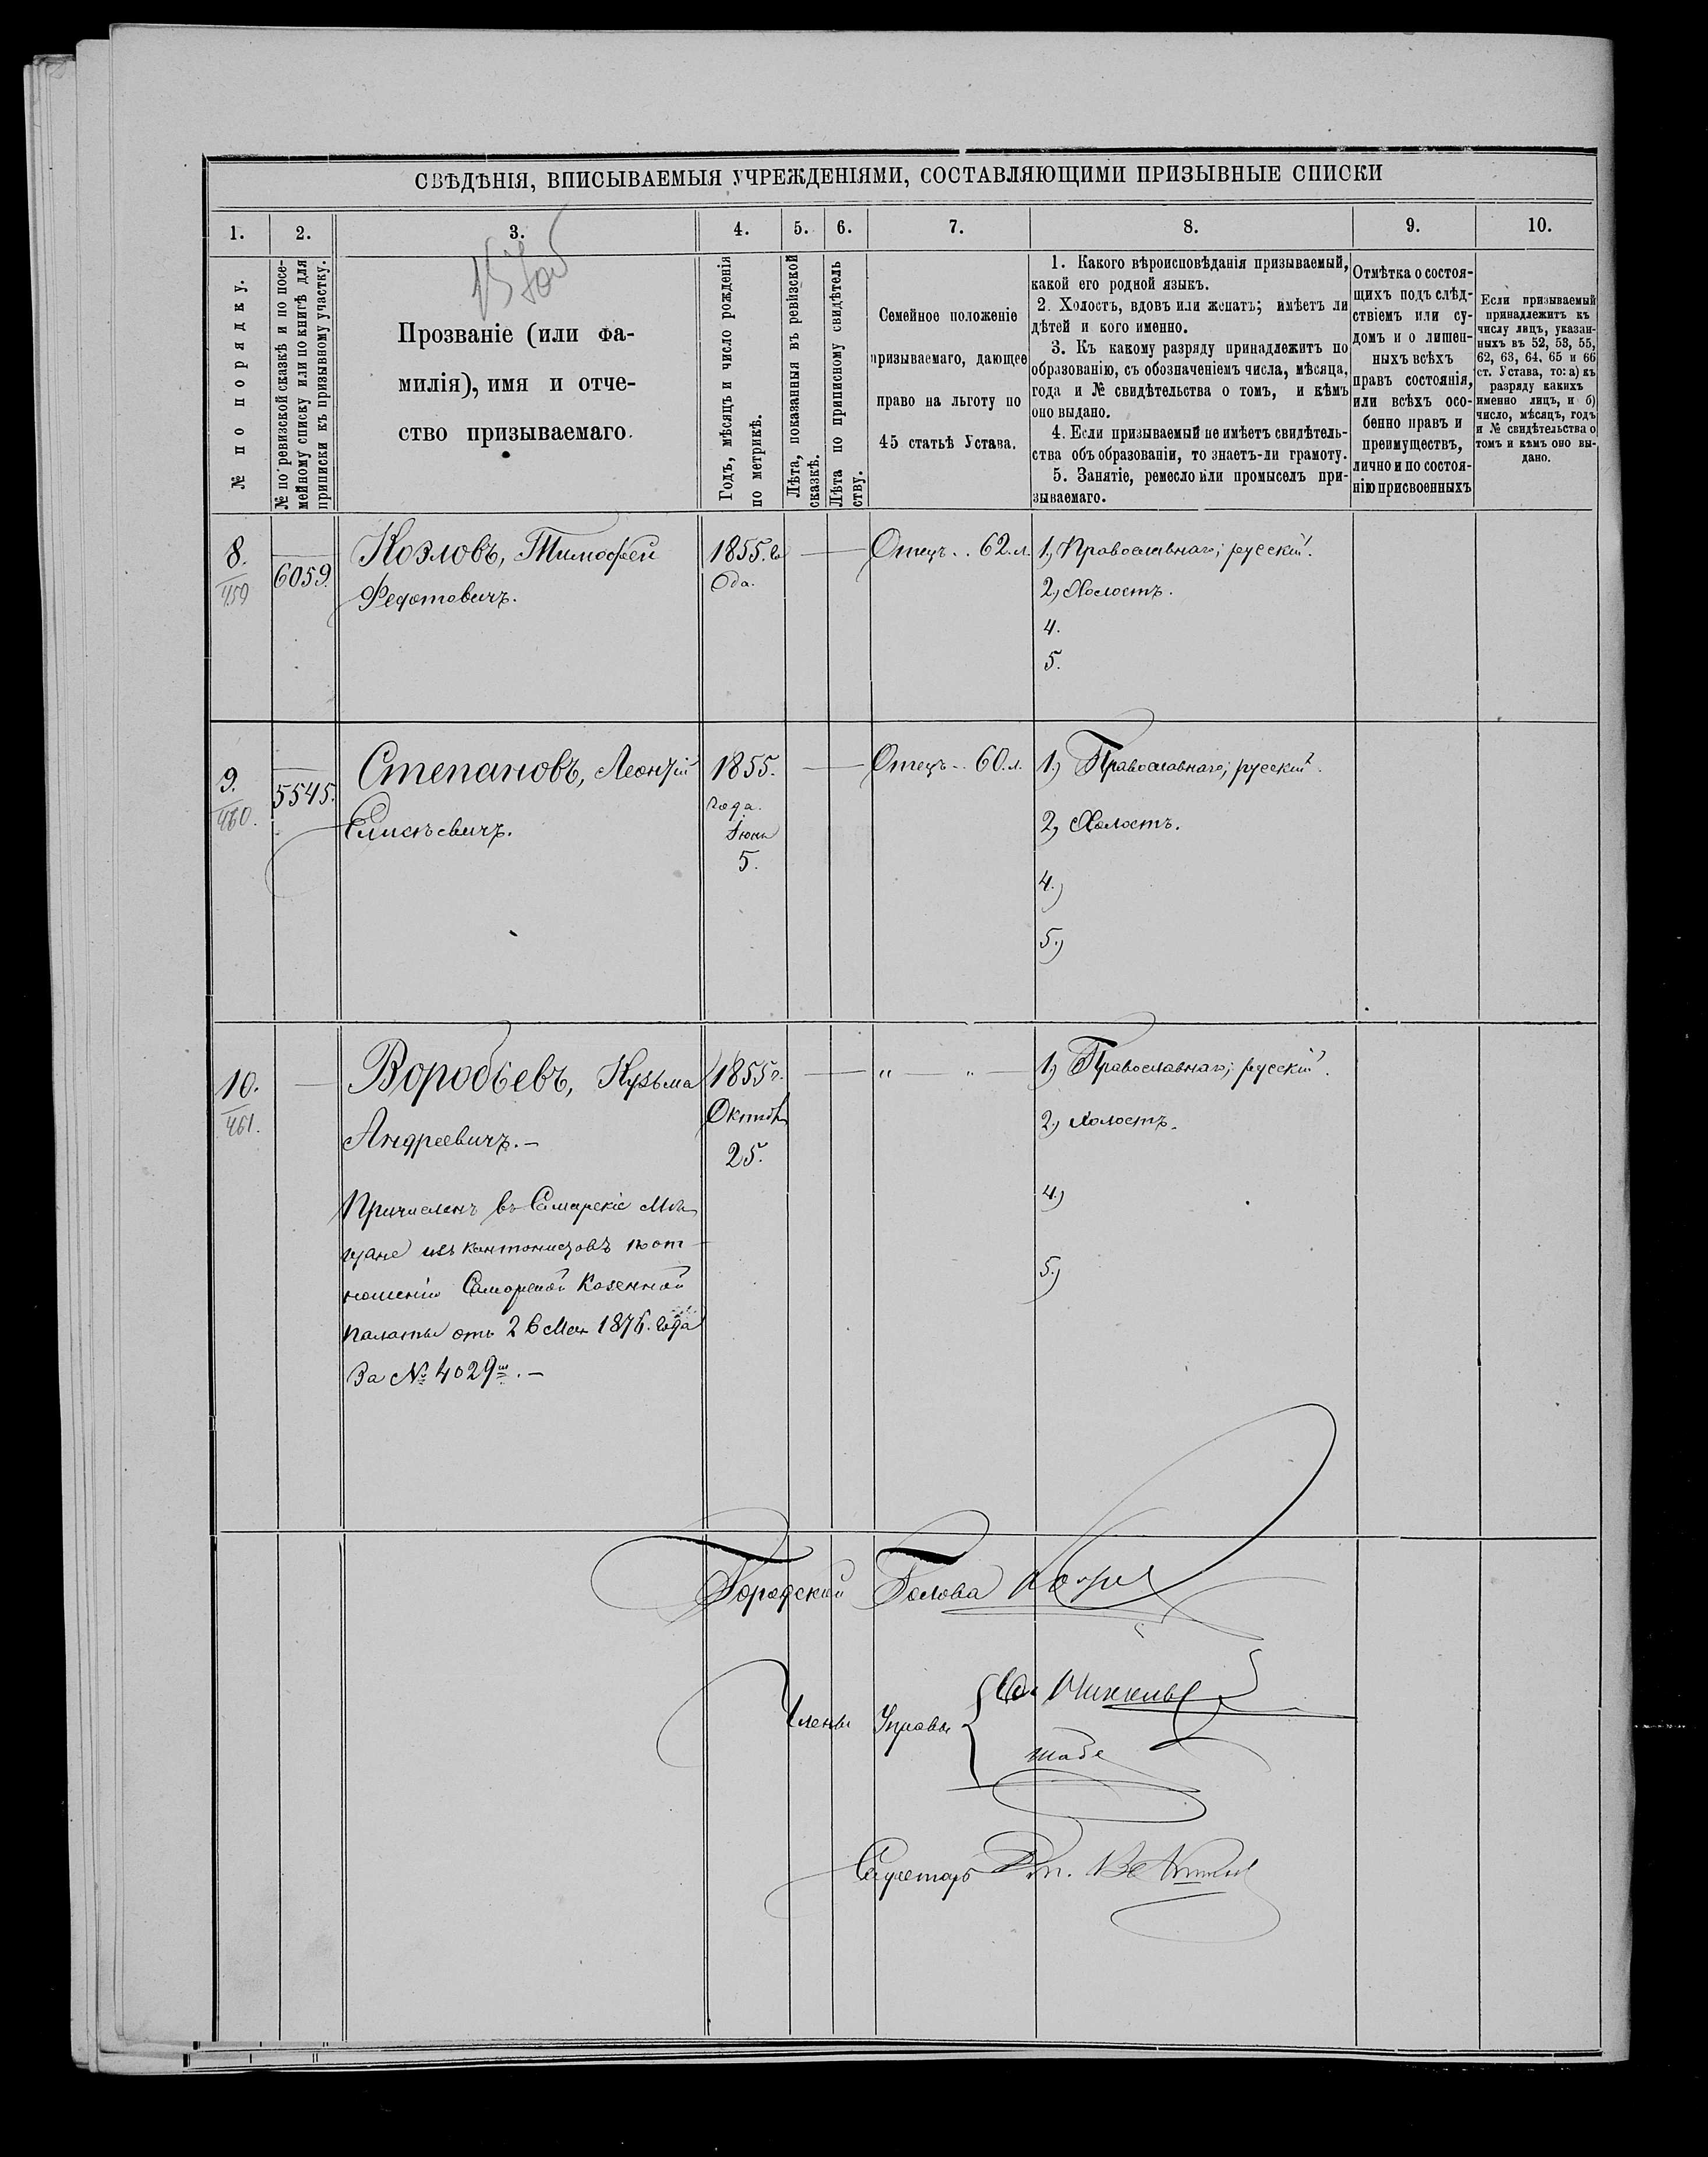 СВѢДѢНІЯ, ВПИСЫВАЕМЫЯ УЧРЕЖДЕНІЯМИ, СОСТАВЛЯЮЩИМИ ПРИЗЫВНЫЕ СПИСКИ
1. 2. 3. 4. 5. 6. 7. 8. 9. 10.
№ по порядку.
№ по ревизской сказкѣ и по посе-
мейному списку или по книгѣ для
приписки къ призывному участку.
Прозваніе (или фа-
милія), имя и отче-
ство призываемаго.
Годъ, мѣсяцъ и число рожденія
по метрикѣ.
Лѣта, показанныя въ ревизской
сказкѣ.
Лѣта по приписному свидѣтель
ству.
Семейное положеніе
призываемаго, дающее
право на льготу по
45 статьѣ Устава.
1. Какого вѣроисповѣданія призываемый,
какой его родной языкъ.
2. Холостъ, вдовъ или женатъ; имѣетъ ли
дѣтей и кого именно.
3. Къ какому разряду принадлежитъ по
образованію, съ обозначеніемъ числа, мѣсяца,
года и № свидѣтельства о томъ, и кѣмъ
оно выдано.
4. Если призываемый не имѣетъ свидѣтель-
ства объ образованіи, то знаетъ-ли грамоту.
5. Занятіе, ремесло или промыселъ при-
зываемаго.
Отмѣтка о состоя-
щихъ подъ слѣд-
ствіемъ или су-
домъ и о лишен-
ныхъ всѣхъ
правъ состоянія,
или всѣхъ осо-
бенно правъ и
преимуществъ,
лично и по состоя-
нію присвоенныхъ
Если призываемый
принадлежитъ къ
числу лицъ, указан-
ныхъ въ 52, 53, 55,
62, 63, 64, 65 и 66
ст. Устава, то: а) къ
разряду какихъ
именно лицъ, и б)
число, мѣсяцъ, годъ
и № свидѣтельства о
томъ и кѣмъ оно вы-
дано.
8. 6059. Козловъ, Тимофей 1855. го Отецъ.. 62. л. 1, Православнаго; русскій.
459 Федотовичъ. ода. 2, Холостъ.
4.
5.
9. 5545. Степановъ, Леонтій 1855. Отецъ.. 60. л. 1.) Православнаго; русскій.
460. Елисѣевичъ. года. 2, Холостъ.
Іюня
5. 4.)
5.)
10. Воробьевъ, Кузьма 1855 г. 1, Православнаго; русскій.
461. Андреевичъ. – Октяб. 2, холостъ.
25.
Причисленъ въ Самарскіе Мѣ 4.)
щане изъ кантонистовъ по от-
ношенію Самарской Казенной 5.)
палаты отъ 26 Мая 1876. года
За № 4029 ш. –
Городской Голова
Члены Управы
Секретарь